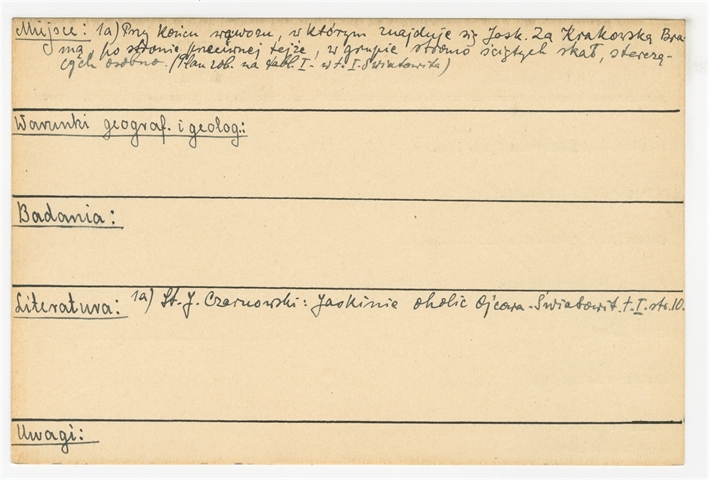 Miejsce: 1a) Przy końcu wąwozu, w którym znajduje się Jask. Za Krakowską Bra-
mą, po stronie przeciwnej tejże, w grupie stromo ściętych skał, sterczą-
cych osobno. (Plan zob. na tabl. I - w t. I. Światowita)
Warunki geograf. i geolog.:
Badania:
Literatura: 1a) St. J. Czarnowski: Jaskinie okolic Ojcowa. Światowit. t. I. str. 10.
Uwagi: